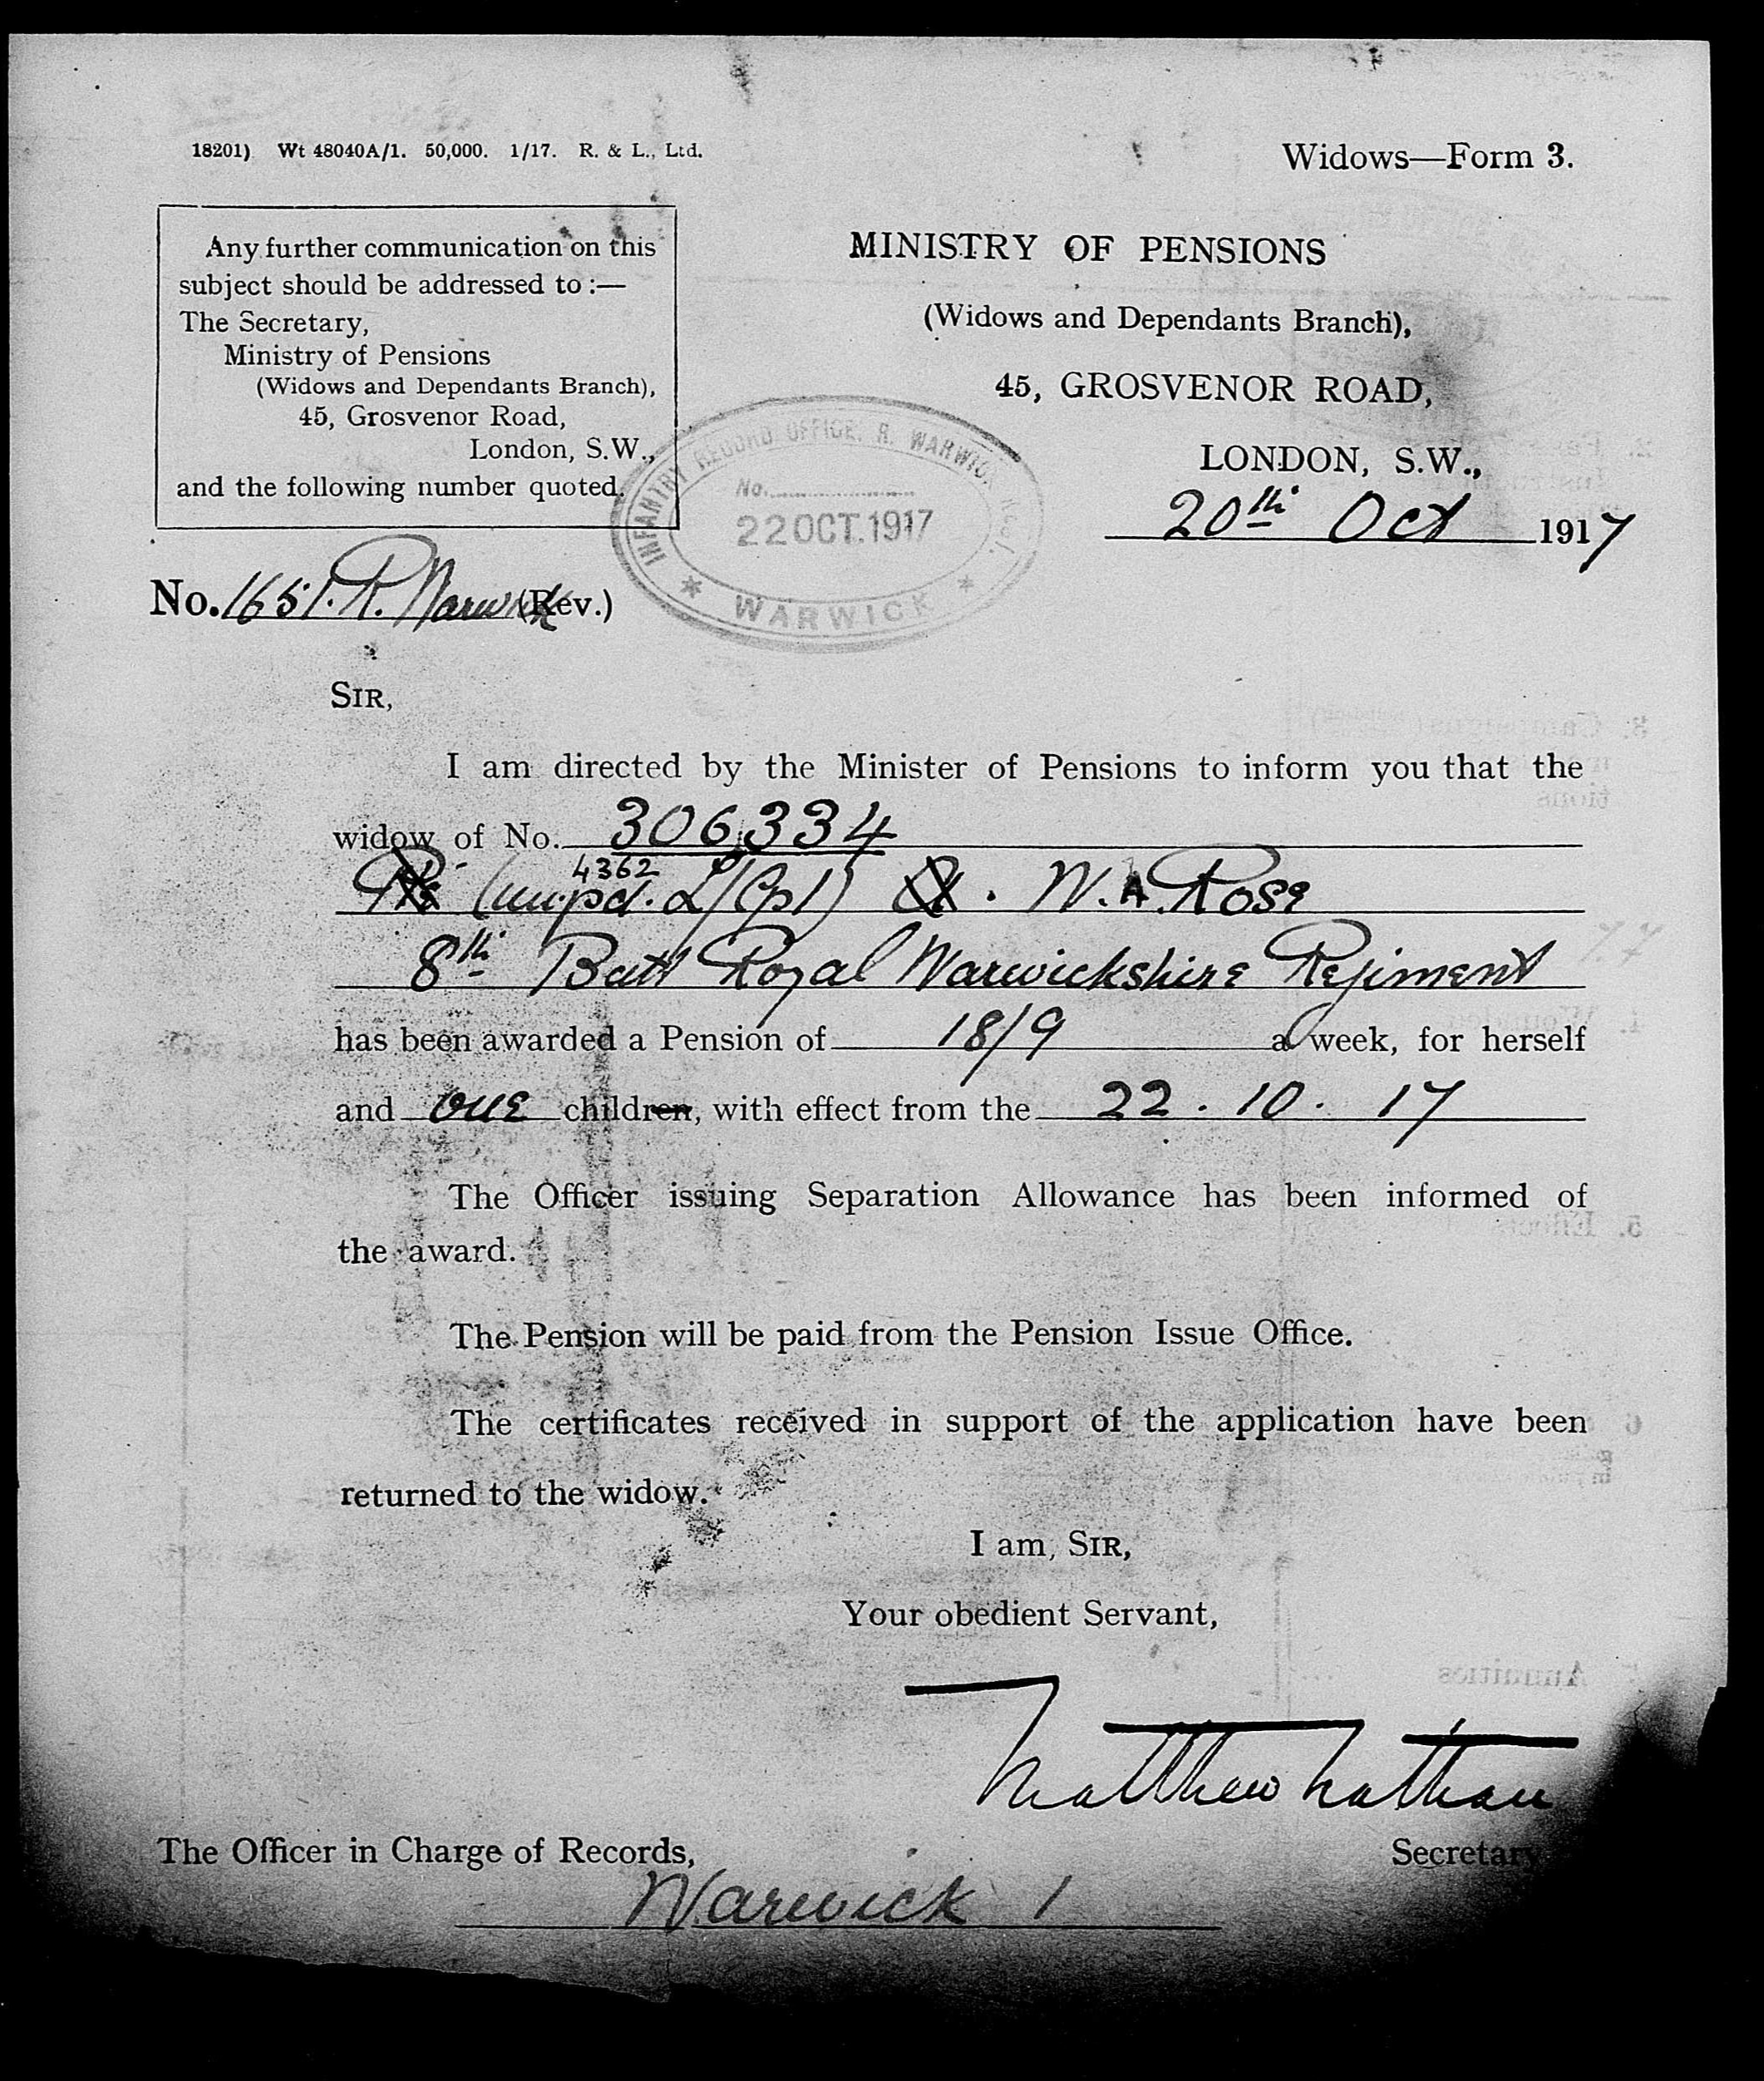 18201) Wt 48040A/1. 50,000. 1/17. R. & L., Ltd.
Widows—Form 3.
Any further communication on this
subject should be addressed to :—
The Secretary,
Ministry of Pensions
(Widows and Dependants Branch),
45, Grosvenor Road,
London, S.W.,
and the following number quoted.
MINISTRY OF PENSIONS
(Widows and Dependants Branch),
45, GROSVENOR ROAD,
LONDON, S.W.,
20th Oct 1917
INFANTRY RECORD OFFICE. R. WARWICK REGT.
No.
22 OCT. 1917
* WARWICK *
No. 1651. R. Warwick (Rev.)
SIR,
I am directed by the Minister of Pensions to inform you that the
widow of No. 306334
4362
Pte (unpd. L/Cpl) . W. A. Rose
8th Batt Royal Warwickshire Regiment
has been awarded a Pension of 18/9 a week, for herself
and one children, with effect from the 22. 10. 17
The Officer issuing Separation Allowance has been informed of
the award.
The Pension will be paid from the Pension Issue Office.
The certificates received in support of the application have been
returned to the widow.
I am, SIR,
Your obedient Servant,
Matthew Nathan
Secretary
The Officer in Charge of Records,
Warwick 1